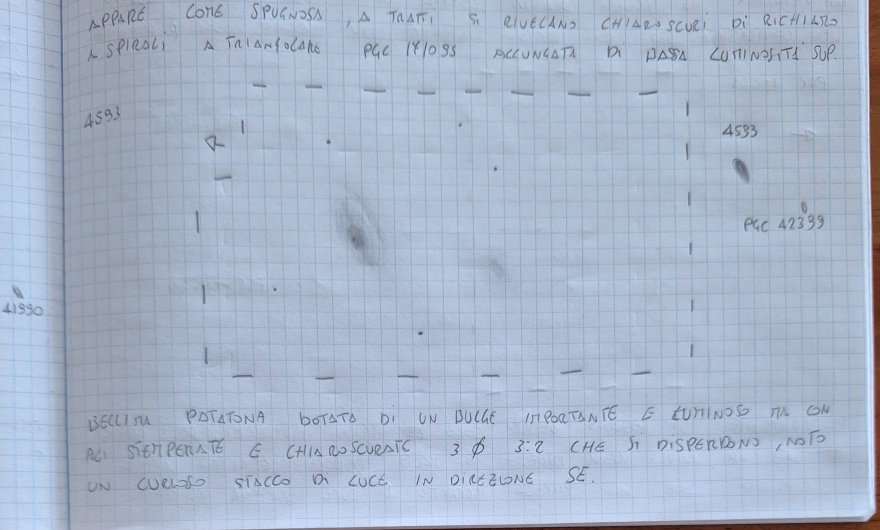 APPARE COME SPUGNOSA, A TRATTI SI RIVELANO CHIAROSCURI DI RICHIAMO
A SPIRALI A TRIANGOLARE PGC 171099 ALLUNGATA DI BASSA LUMINOSITÀ SUP.
4593
4593
PGC 42399
41990
BELLINA PATATONA DOTATA DI UN BULGE IMPORTANTE E LUMINOSO MA CON
ALI STEMPERATE E CHIAROSCURATE 3 Ø 3:2 CHE SI DISPERDONO, NOTO
UN CURIOSO STACCO DI LUCE IN DIREZIONE SE.